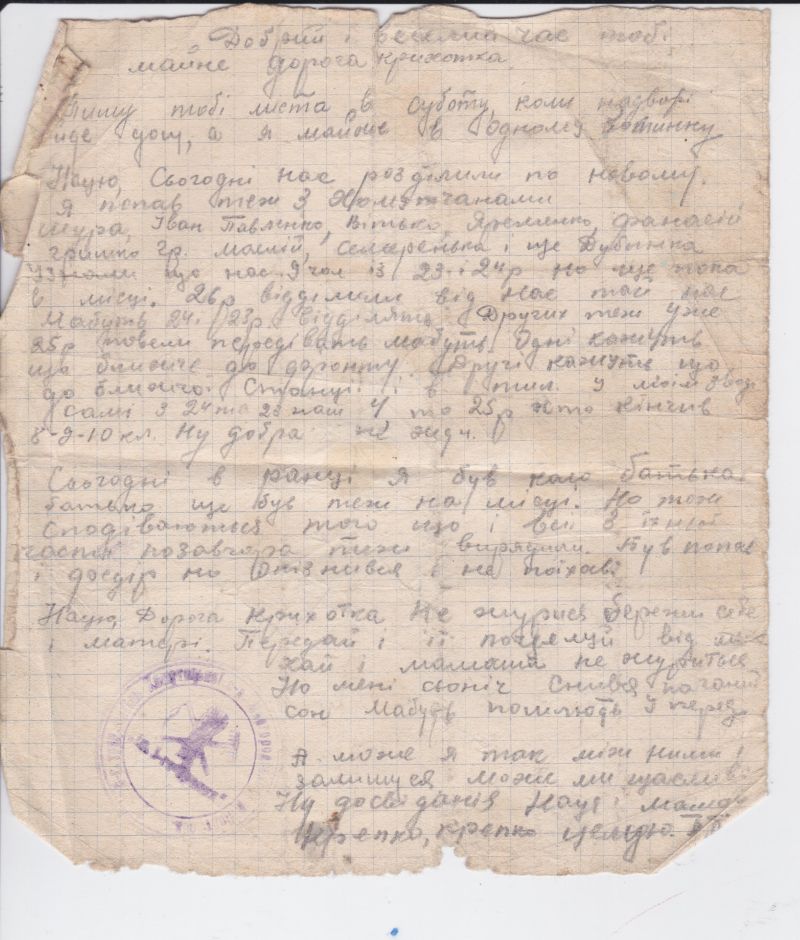 Добрий і веселий час тобі
майне дорога крихотка
Пишу тобі листа в суботу, коли надворі
йде дощ, а я майже в одному ботинку
Нацю, Сьогодні нас розділили по новому.
Я попав теж з Хомутчанами
Шура, Іван Павленко, Вітько, Яременко, Фанасій
Гришко Гр. Маслій, Семеренька і ще Дубинка
з нами що нас 9 чол із 23 і 24р но ще пока
в лисці. 26р відділили від нас той час
Мабуть 24 і 23р відділять. Других теж уже
25р повели передівать мабуть. Одні кажуть
що ближче до фронту. Другі кажуть що
до ближчої Станції і в тил. У моїм зводі
самі з 24 то 23 наш 4 то 25р хто кінчив
8-9-10 кл. Ну добра не жду.
Сьогодні в ранці я був коло батька
батько ще був теж на місці. Но тож
Сподіваються того що і всі з їхньої
часті позавчора тиж вирядили. Був попав
і досдір но опізнився і не поїхав.
Нацю, Дорога крихотка Не журись бережи себе
і матері. Передай і її поцелуй від мене
хай і мамаша не журиться
Но мені сьоніч снився поганий
сон Мабудь пошлють у перед
А може я так між ними і
залишуся може ми щасливі
Ну досвіданія Нацю і мамаш
Церепко, крепко целую.